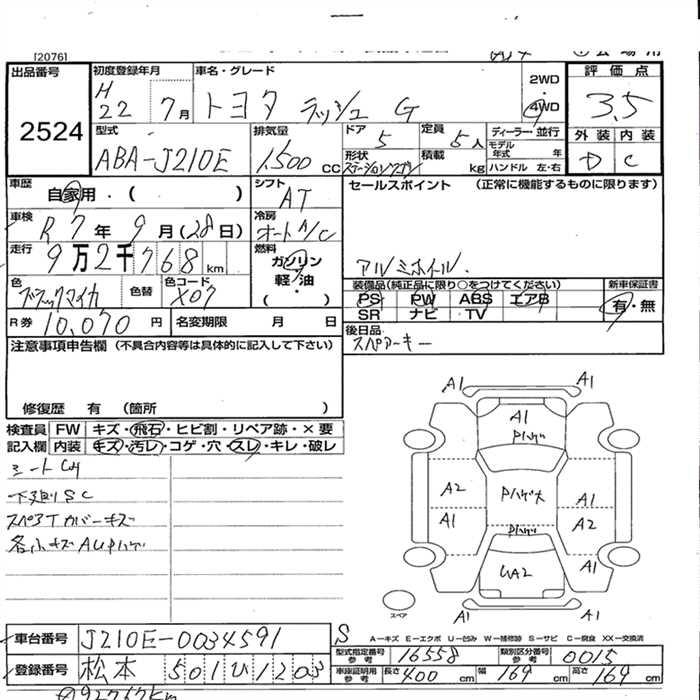 [2076]
出品番号
2524
初度登録年月
H 22 7月
車名・グレード
トヨタ ラッシュ G
2WD
4WD
評価点
3.5
外装 内装
D C
型式
ABA-J210E
排気量
1500 cc
ドア
5
定員
5人
形状
ステーションワゴン
積載
kg
ディーラー・並行
モデル年式 年
ハンドル 左・右
車歴
自家用・( )
シフト
AT
車検
R7年9月(28日)
冷房
オートA/C
走行
9万2千768km
燃料
ガソリン
軽・油
( )
色
ブラックマイカ
色替
色コード
X07
R券 10,070円
名変期限 月 日
セールスポイント (正常に機能するものに限ります)
アルミホイル.
装備品(純正品に限り○をつけてください)
PS PW ABS エアB
SR ナビ TV
新車保証書
有・無
後日品
スペアーキー
注意事項申告欄(不具合内容等は具体的に記入して下さい)
修復歴 有 (箇所 )
検査員記入欄
FW キズ・飛石・ヒビ割・リペア跡・×要
内装 キズ・汚レ・コゲ・穴・スレ・キレ・破レ
下廻りSC
スペアTカバーキズ
各小キズAUPハゲ
A1 A1
A1
Pハゲ
A2
A1
Pハゲ大
A1
A2
Pハゲ
UA2
A1
A1 A1
スペア
S
A-キズ E-エクボ U-凹み W-補修跡 S-サビ C-腐食 XX-交換済
車台番号
J210E-0034591
登録番号
松本 501ひ1203
型式指定番号
参考
16558
類別区分番号
参考
0015
車庫証明用
参考
長さ 400cm
幅 169cm
高さ 169cm